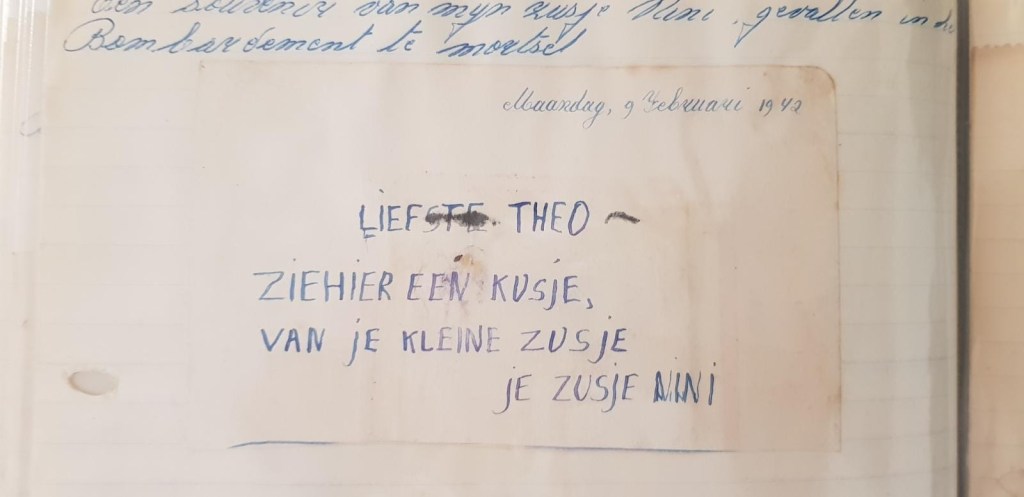 Een souvenir van mijn zusje Nini, gevallen in de
Bombardement te mortsel
Maandag, 9 Februari 1942
LIEFSTE THEO
ZIEHIER EEN KUSJE,
VAN JE KLEINE ZUSJE
JE ZUSJE NINI